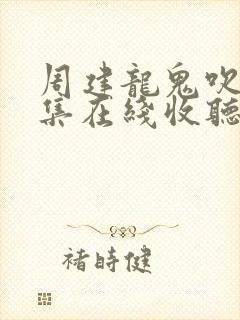 周建龍鬼吹
集在綫收聽
褚時健